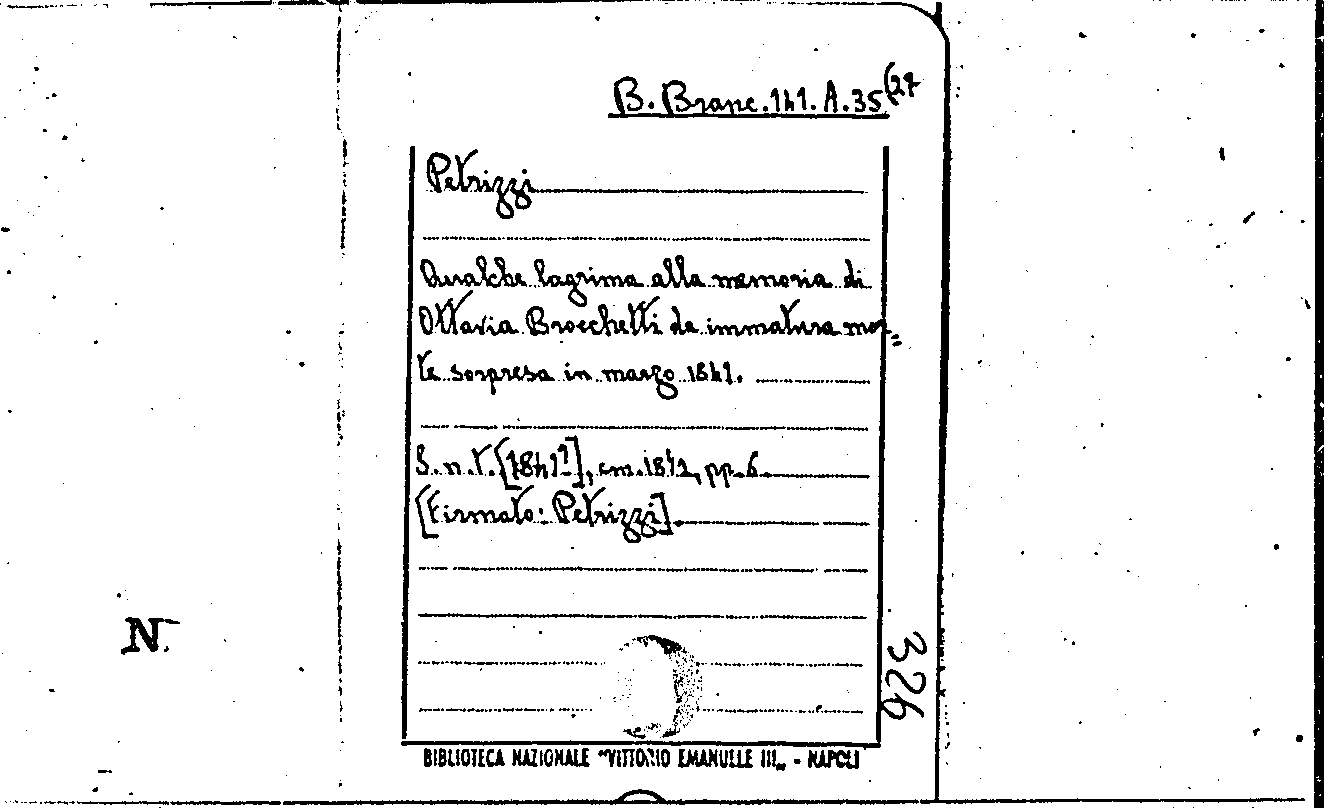 B. Branc. 141. A. 35(27
Petrizzi
Qualche lagrima alla memoria di
Ottavia Brocchetti da immatura mor=
te sorpresa in marzo 1841.
S. n. t. [1841?], cm. 18½, pp. 6.
[Firmato: Petrizzi].
N.
326
BIBLIOTECA NAZIONALE "VITTORIO EMANUELE III„ - NAPOLI